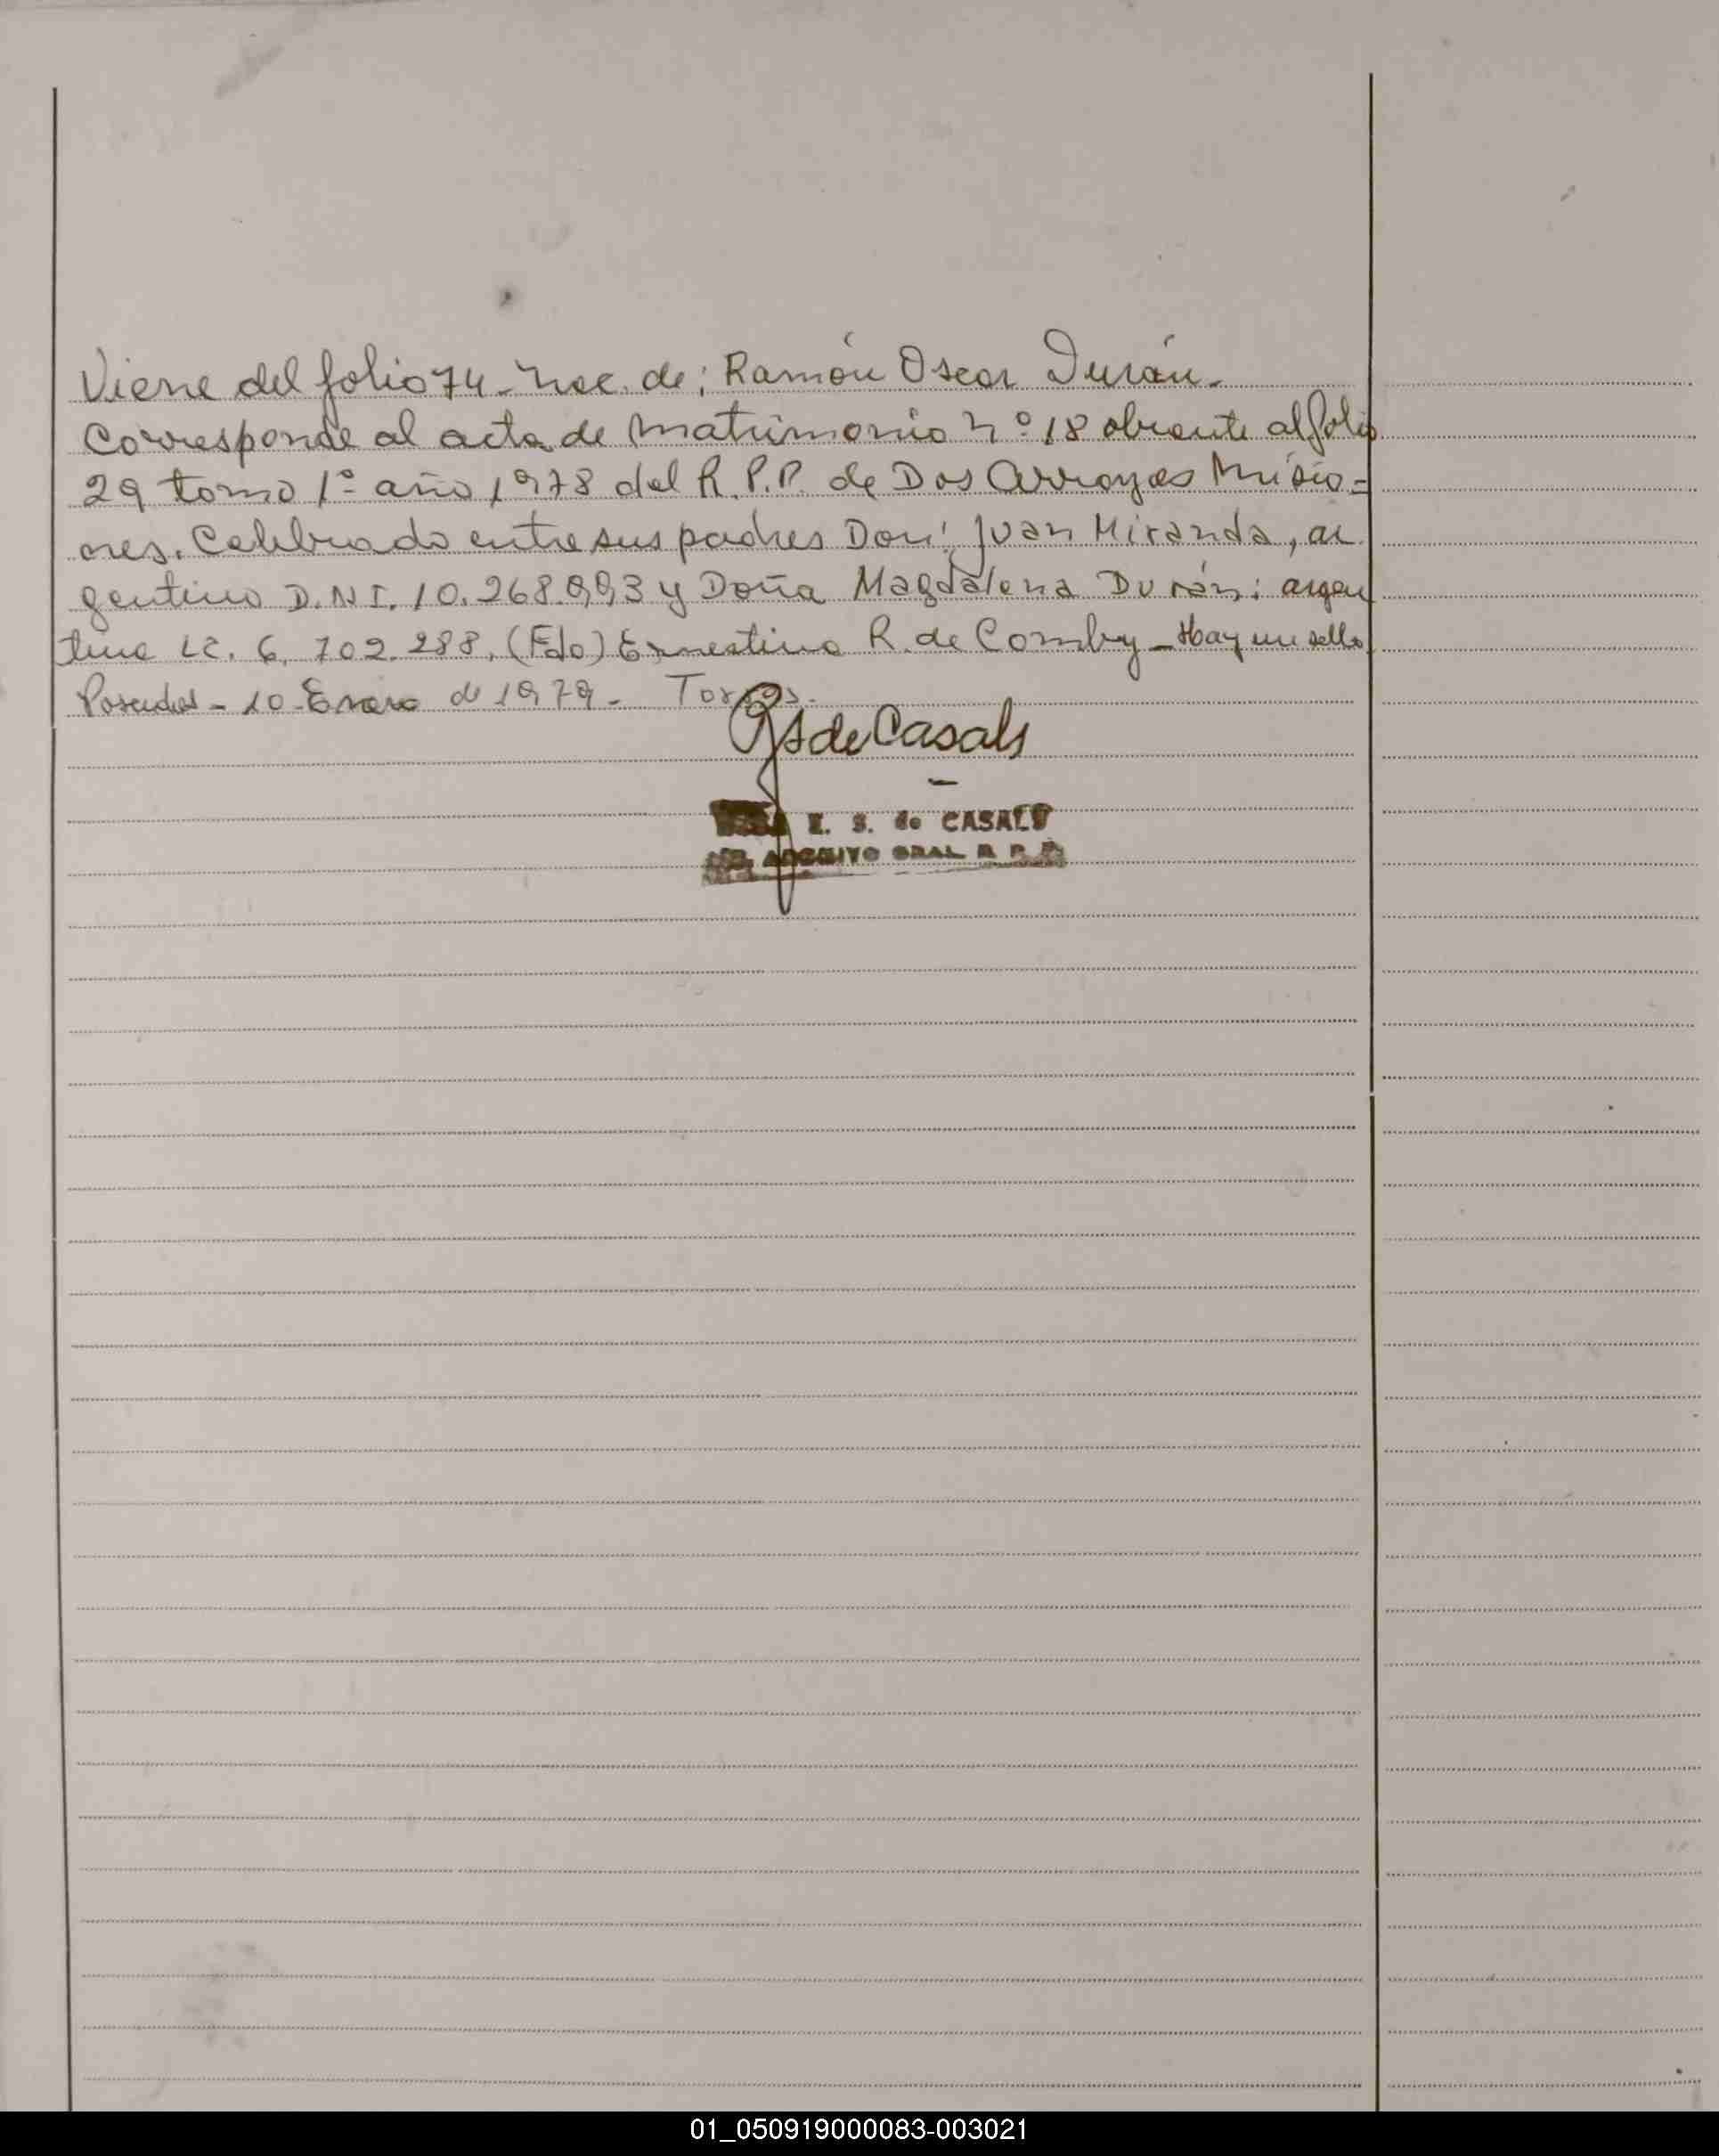 Viene del folio 74 - Nac. de: Ramón Oscar Durán.
Corresponde al acta de Matrimonio Nº 18 obrante al folio
29 tomo 1º año 1978 del R.P.P. de Dos Arroyos Misio=
ones. Celebrado entre sus padres Don: Juan Miranda, ar
gentino D.N.I. 10.268.993 y Doña Magdalena Durán: argen
tina LC. 6.702.288. (Fdo) Ernestina R. de Comby - Hay un sello
Posadas - 10 Enero de 1979 - Torres.
de Casals
E. S. de CASALS
ARCHIVO GRAL R P P
01_050919000083-003021